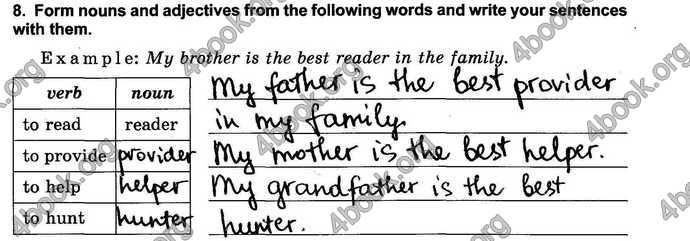 8. Form nouns and adjectives from the following words and write your sentences
with them.
Example: My brother is the best reader in the family.
verb noun
to read reader
to provide provider
to help helper
to hunt hunter
My father is the best provider
in my family.
My mother is the best helper.
My grandfather is the best
hunter.
4book.org
4book.org
4book.org
4book.org
4book.org
4book.org
4book.org
4book.org